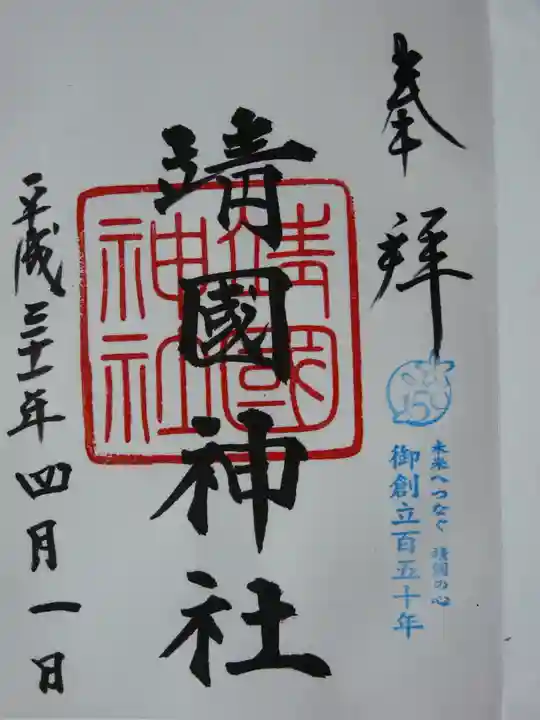 奉拝
150
未来へつなぐ 靖國の心
御創立百五十年
靖國神社
靖國神社
平成三十一年四月一日